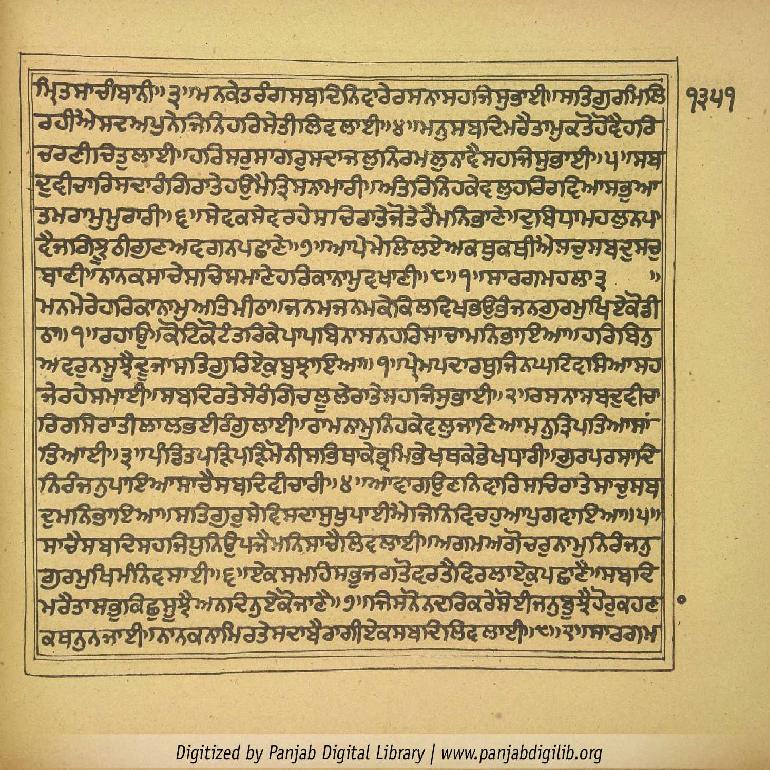 ਮ੍ਰਿਤਸਾਚੀਬਾਨੀ॥੩॥ਮਨਕੇਤਰੰਗਸਬਦਿਨਿਵਾਰੇਰਸਨਾਸਹਜਿਸੁਭਾਈ॥ਸਤਿਗੁਰਮਿਲਿ ੧੩੫੧
ਰਹੀਐਸਦਅਪੁਨੇਜਿਨਿਹਰਿਸੇਤੀਲਿਵਲਾਈ॥੪॥ਮਨੁਸਬਦਿਮਰੈਤਾਮੁਕਤੋਹੋਵੈਹਰਿ
ਚਰਣੀਚਿਤੁਲਾਈ॥ਹਰਿਸਰੁਸਾਗਰੁਸਦਾਜਲੁਨਿਰਮਲੁਨਾਵੈਸਹਜਿਸੁਭਾਈ॥੫॥ਸਬ
ਦੁਵੀਚਾਰਿਸਦਾਰੰਗਿਰਾਤੇਹਉਮੈਤ੍ਰਿਸਨਾਮਾਰੀ॥ਅੰਤਰਿਨਿਹਕੇਵਲੁਹਰਿਰਵਿਆਸਭੁਆ
ਤਮਰਾਮੁਮੁਰਾਰੀ॥੬॥ਸੇਵਕਸੇਵਰਹੇਸਚਿਰਾਤੇਜੋਤੇਰੈਮਨਿਭਾਣੇ॥ਦੁਬਿਧਾਮਹਲੁਨਪਾ
ਵੈਜਗਿਝੂਠੀਗੁਣਅਵਗਨਪਛਾਣੇ॥੭॥ਆਪੇਮੇਲਿਲਏਅਕਥੁਕਥੀਐਸਚੁਸਬਦੁਸਚੁ
ਬਾਣੀ॥ਨਾਨਕਸਾਚੇਸਚਿਸਮਾਣੇਹਰਿਕਾਨਾਮੁਵਖਾਣੀ॥੮॥੧॥ਸਾਰਗਮਹਲਾ੩ ॥
ਮਨਮੇਰੇਹਰਿਕਾਨਾਮੁਅਤਿਮੀਠਾ॥ਜਨਮਜਨਮਕੇਕਿਲਵਿਖਭਉਭੰਜਨਗੁਰਮੁਖਿਏਕੋਡੀ
ਠਾ॥੧॥ਰਹਾਉ॥ਕੋਟਿਕੋਟੰਤਰਿਕੇਪਾਪਬਿਨਾਸਨਹਰਿਸਾਚਾਮਨਿਭਾਇਆ॥ਹਰਿਬਿਨੁ
ਅਵਰੁਨਸੂਝੈਦੂਜਾਸਤਿਗੁਰਿਏਕੁਬੁਝਾਇਆ॥੧॥ਪ੍ਰੇਮਪਦਾਰਥੁਜਿਨਘਟਿਵਸਿਆਸਹ
ਜੇਰਹੇਸਮਾਈ॥ਸਬਦਿਰਤੇਸੇਰੰਗਿਚਲੂਲੇਰਾਤੇਸਹਜਿਸੁਭਾਈ॥੨॥ਰਸਨਾਸਬਦੁਵੀਚਾ
ਰਿਰਸਿਰਾਤੀਲਾਲਭਈਰੰਗੁਲਾਈ॥ਰਾਮਨਾਮੁਨਿਹਕੇਵਲੁਜਾਣਿਆਮਨੁਤ੍ਰਿਪਤਿਆਸਾਂ
ਤਿਆਈ॥੩॥ਪੰਡਿਤਪੜ੍ਹਿਪੜ੍ਹਿਮੋਨੀਸਭਿਥਾਕੇਭ੍ਰਮਿਭੇਖਥਕੇਭੇਖਧਾਰੀ॥ਗੁਰਪਰਸਾਦਿ
ਨਿਰੰਜਨੁਪਾਇਆਸਾਚੈਸਬਦਿਵੀਚਾਰੀ॥੪॥ਆਵਾਗਉਣਨਿਵਾਰਿਸਚਿਰਾਤੇਸਾਚੁਸਬ
ਦੁਮਨਿਭਾਇਆ॥ਸਤਿਗੁਰੁਸੇਵਿਸਦਾਸੁਖੁਪਾਈਐਜਿਨਿਵਿਚਹੁਆਪੁਗਵਾਇਆ॥੫॥
ਸਾਚੈਸਬਦਿਸਹਜਿਧੁਨਿਉਪਜੈਮਨਿਸਾਚੈਲਿਵਲਾਈ॥ਅਗਮਅਗੋਚਰੁਨਾਮੁਨਿਰੰਜਨੁ
ਗੁਰਮੁਖਿਮੰਨਿਵਸਾਈ॥੬॥ਏਕਸਮਹਿਸਭੁਜਗਤੋਵਰਤੈਵਿਰਲਾਏਕੁਪਛਾਣੈ॥ਸਬਦਿ
ਮਰੈਤਾਸਭੁਕਿਛੁਸੂਝੈਅਨਦਿਨੁਏਕੋਜਾਣੈ॥੭॥ਜਿਸਨੋਨਦਰਿਕਰੇਸੋਈਜਨੁਬੂਝੈਹੋਰੁਕਹਣ
ਕਥਨੁਨਜਾਈ॥ਨਾਨਕਨਾਮਿਰਤੇਸਦਾਬੈਰਾਗੀਏਕਸਬਦਿਲਿਵਲਾਈ॥੮॥੨॥ਸਾਰਗਮ
Digitized by Panjab Digital Library | www.panjabdigilib.org